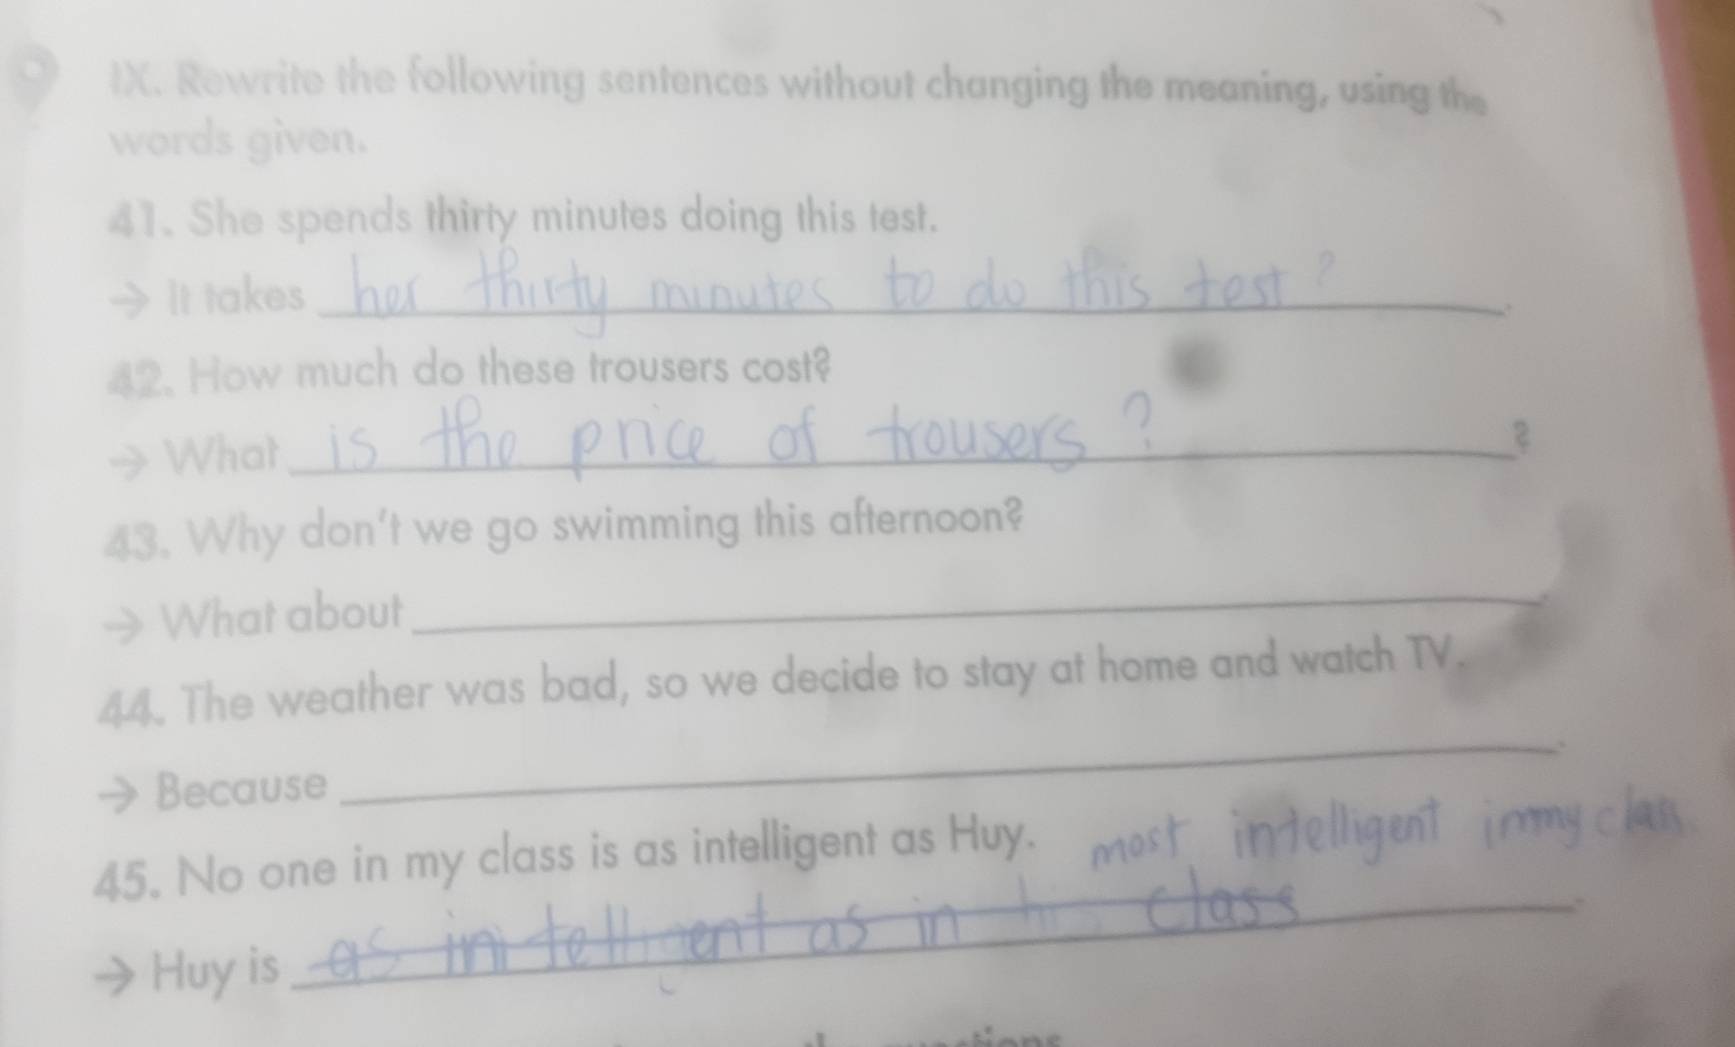 IX. Rewrite the following sentences without changing the meaning, using the
words given.
41. She spends thirty minutes doing this test.
→ It takes her thirty minutes to do this test ? .
42. How much do these trousers cost?
→ What is the price of trousers ? ?
43. Why don't we go swimming this afternoon?
→ What about
44. The weather was bad, so we decide to stay at home and watch TV.
→ Because .
45. No one in my class is as intelligent as Huy. most intelligent in my class
→ Huy is as intelligent as in class .